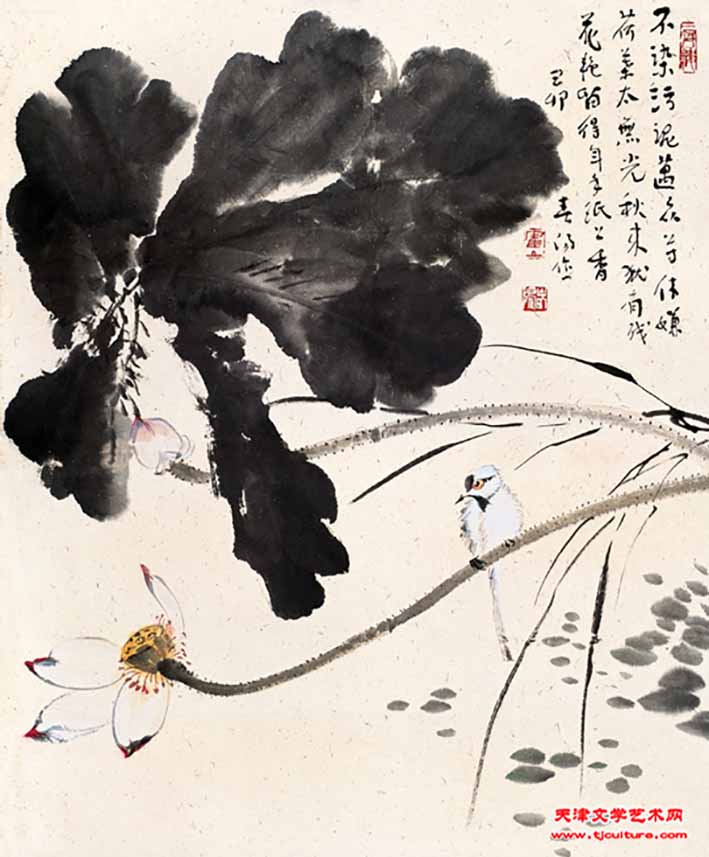 不染污泥邁众芳休嫌
荷葉太無光秋来犹有残
花艳留得年年纸上香
己卯
天津文学艺术网
www.tjculture.com